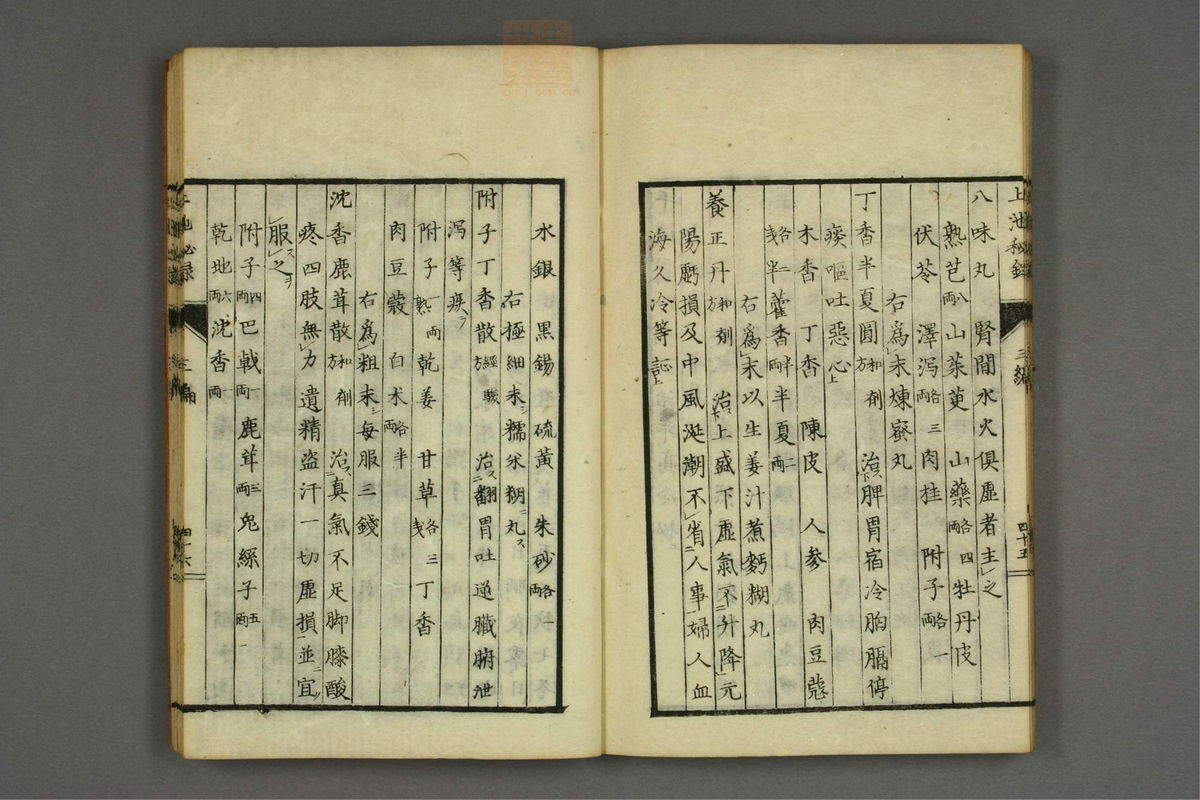 上池秘錄
三編
四十五
八味丸 腎間水火俱虛者主之
熟芐八兩 山茱萸 山藥各四兩 牡丹皮
伏苓 澤瀉各三兩 肉桂 附子各一兩
右爲末煉蜜丸
丁香半夏圓和劑方 治脾胃宿冷胸膈停
痰嘔吐惡心上
木香 丁香 陳皮 人參 肉豆蔻
各半錢 藿香半兩 半夏二兩
右爲末以生姜汁煮麪糊丸
養正丹和劑方 治上盛下虛氣不升降元
陽虧損及中風涎潮不省人事婦人血
海久冷等証上
水銀 黑錫 硫黃 朱砂各兩
右極細末シ糯米糊ニ丸ス
附子丁香散經驗方 治ス翻胃吐逆臟腑泄
瀉等疾ヲ
附子一兩熟 乾姜 甘草各三錢 丁香
肉豆蔻 白朮各半兩
右爲粗末シ每服三錢
沈香鹿茸散和劑方 治ス真氣不足脚膝酸
疼四肢無力遺精盜汗一切虛損並ニ宜
服ス之ヲ
附子四兩 巴戟一兩 鹿茸三兩 兎絲子五兩
乾地六兩 沈香一兩
上池秘錄
三編
四十六